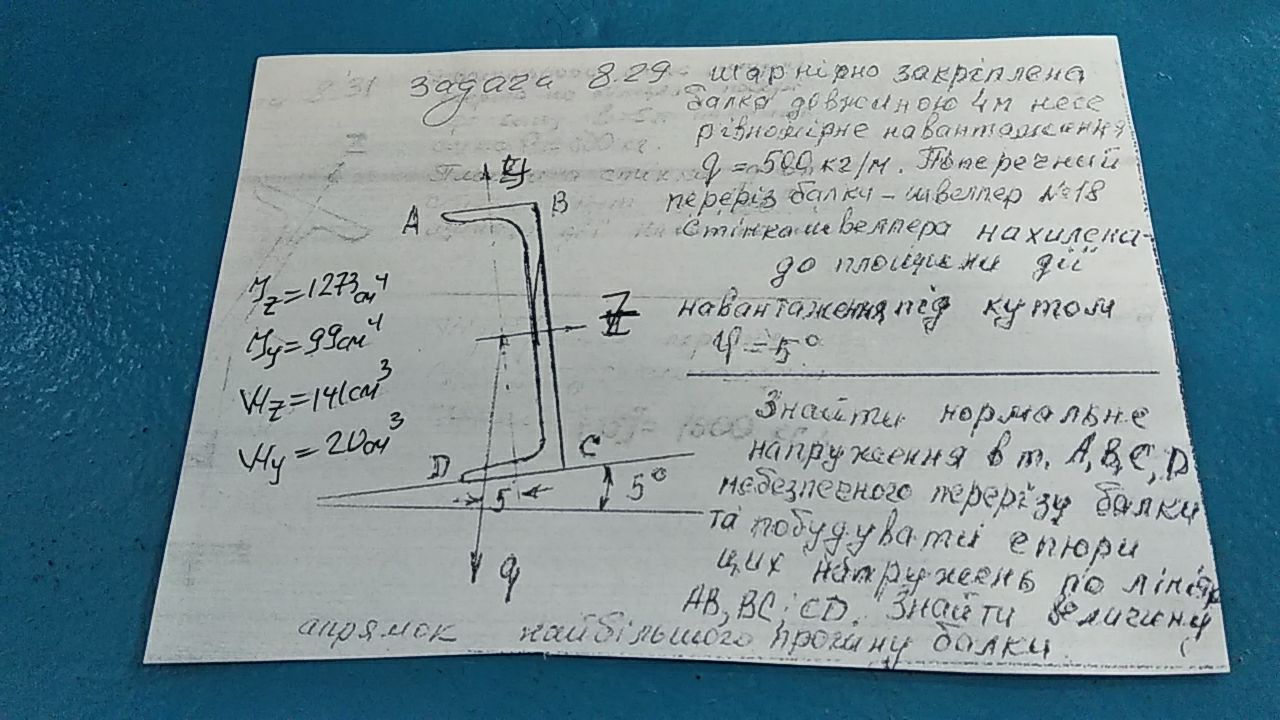 Задача 8.29
шарнірно закріплена
балка довжиною 4м несе
рівномірне навантаження
q = 500 кг/м. Поперечний
переріз балки - швеллер №18
Стінка швеллера нахилена
до площини дії
навантаження під кутом
φ = 5°
Знайти нормальне
напруження в т. A, B, C, D
небезпечного перерізу балки
та побудувати епюри
цих напружень по лініях
AB, BC і CD. Знайти величину
апрямок найбільшого прогину балки.
y
A
B
Z
Jz = 1273 см⁴
Jy = 99 см⁴
Wz = 141 см³
Wy = 20 см³
D
C
5
5°
q